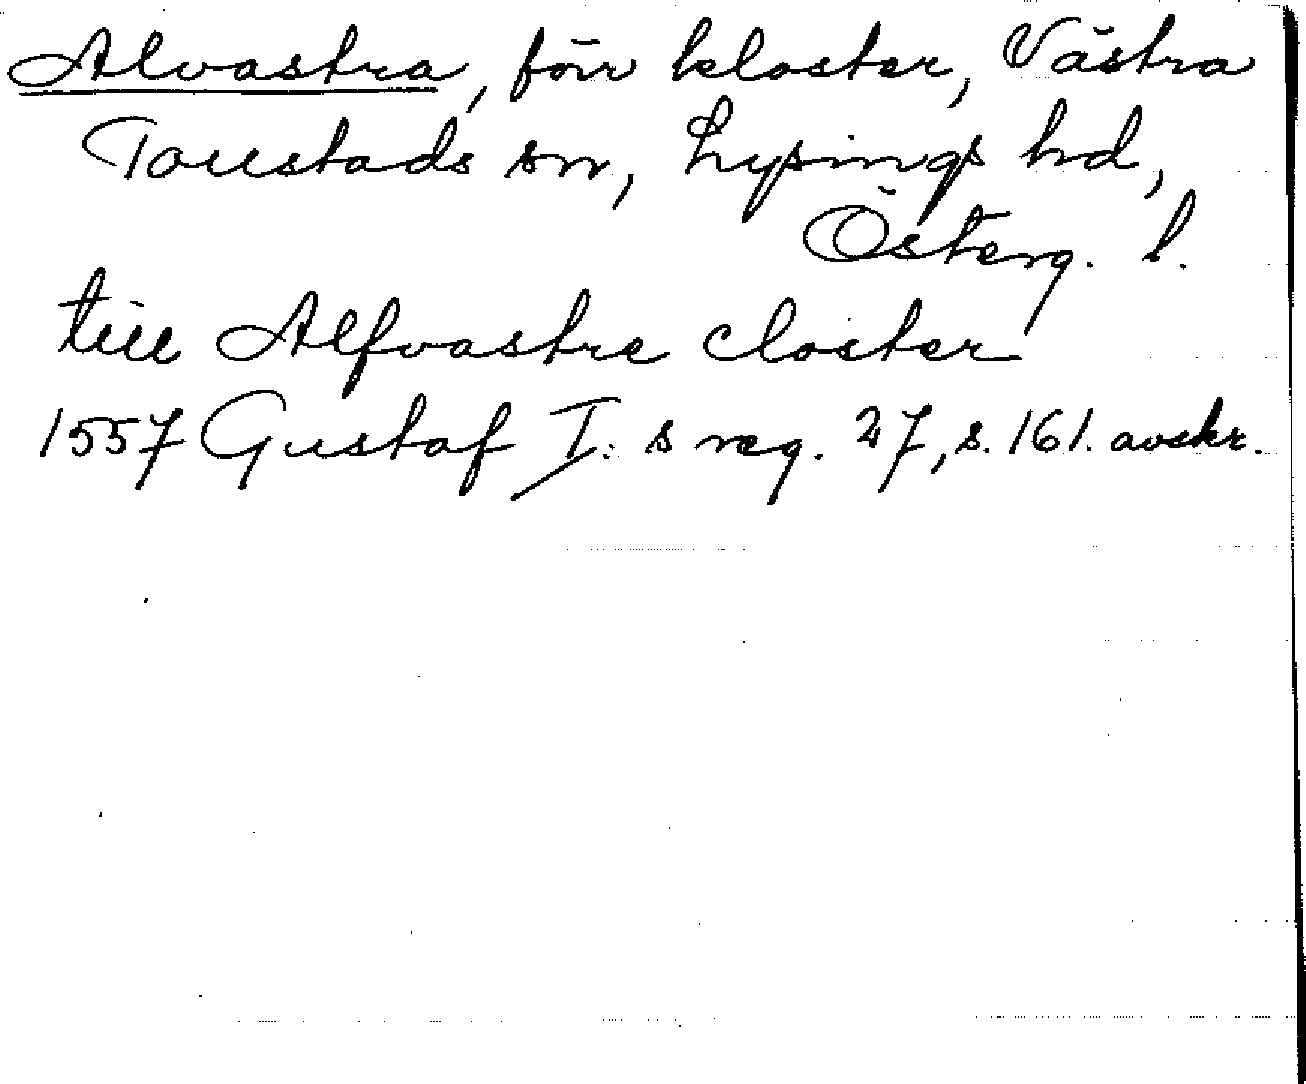 Alvastra, förr kloster, Västra
Tollstads sn, Lysings hd,
Österg. l.
till Alfvastre closter
1557 Gustaf I:s reg. 27, s. 161. avskr.